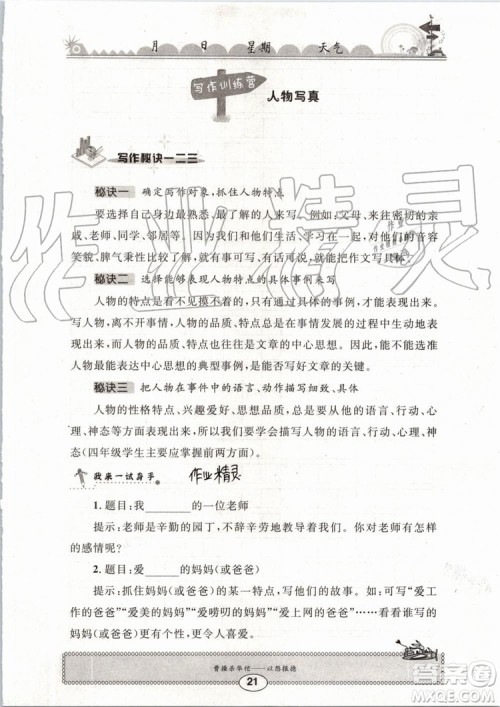 月 日 星期 天气
写作训练营
人物写真
写作秘诀一二三
秘诀一 确定写作对象,抓住人物特点
要选择自己身边最熟悉、最了解的人来写。例如,父母、来往密切的亲
戚、老师、同学、邻居等。因为我们和他们生活、学习在一起,对他们的音容
笑貌、脾气秉性比较了解,写起来就有事可写,有话可说,就能把作文写具体。
秘诀二 选择能够表现人物特点的具体事例来写
人物的特点是看不见摸不着的,只有通过具体的事例才能表现出来。
写人物,离不开事情,人物的特点总是在事情发展的过程中生动地表
现出来。所以,事情的选择直接关系到文章的中心思想。因此,选择最
能反映人物特点、最能表达中心思想的典型事例,是写好文章的关键。
秘诀三 把人物在事件中的语言、动作描写细致、具体
人物的性格特点、兴趣爱好、思想品质,总是要从他的语言、行动、心
理、神态等方面表现出来。所以,我们要抓住人物的语言、行动、心理、神
态(四年级学生主要应掌握前两方面)。
我来一试身手
作业精灵
1. 题目:我______的一位老师
提示:老师是辛勤的园丁,不辞辛劳地教导着我们。你对老师有怎样
的感情呢?
2. 题目:爱______的妈妈(或爸爸)
提示:抓住妈妈(或爸爸)的某一特点,写他们的故事。如可写“爱工
作的爸爸”“爱美的妈妈”“爱唠叨的妈妈”“爱上网的爸爸”……看看谁写的
妈妈(或爸爸)更有个性。
曹操杀华佗——以怨报德
21
作业精灵